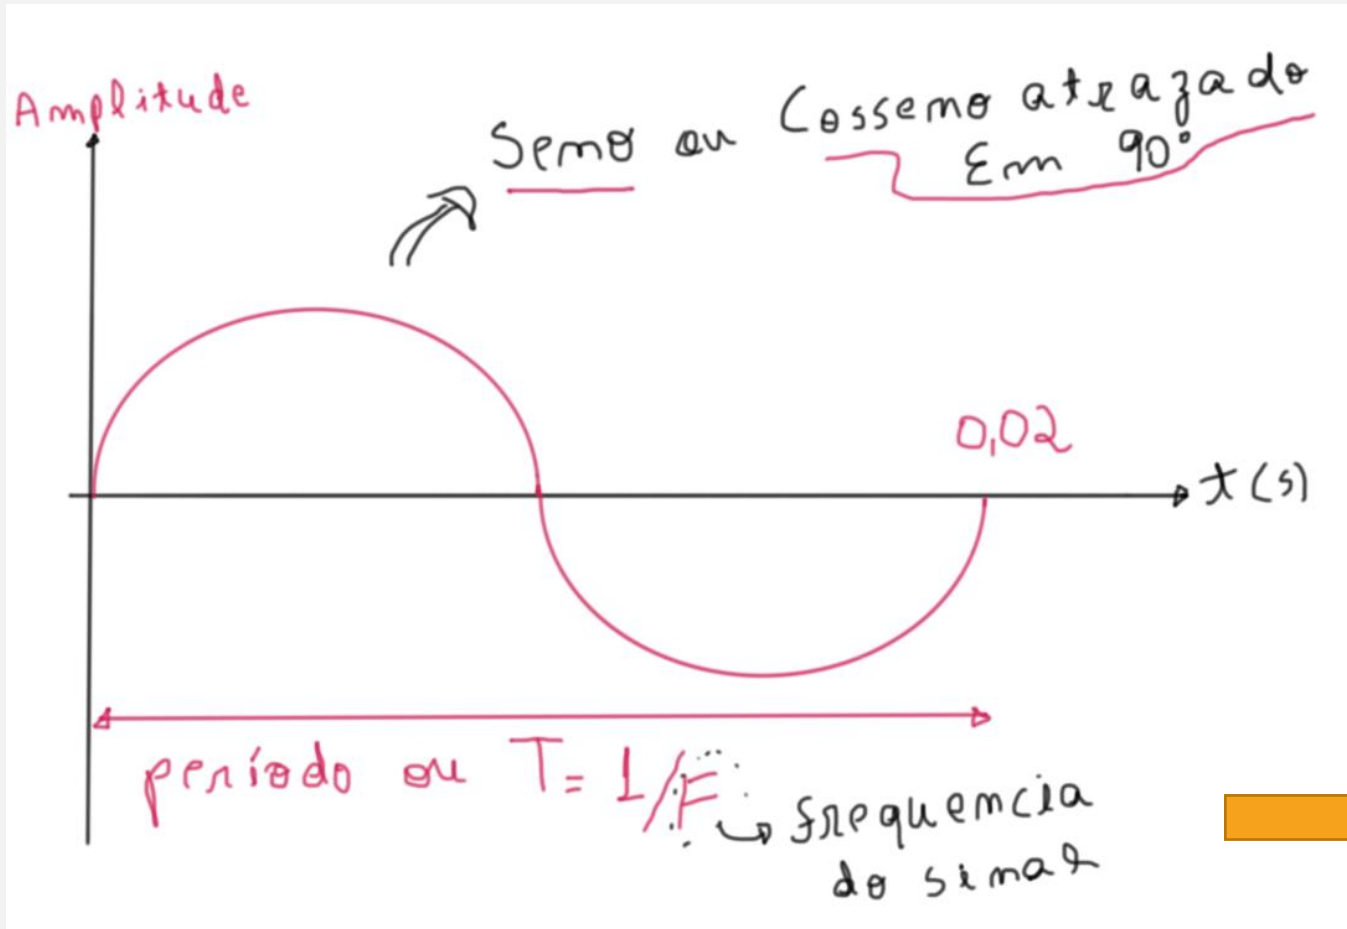 Amplitude
Seno ou Cosseno atrazado
Em 90°
0,02
t(s)
período ou T = 1/F
frequencia
do sinal